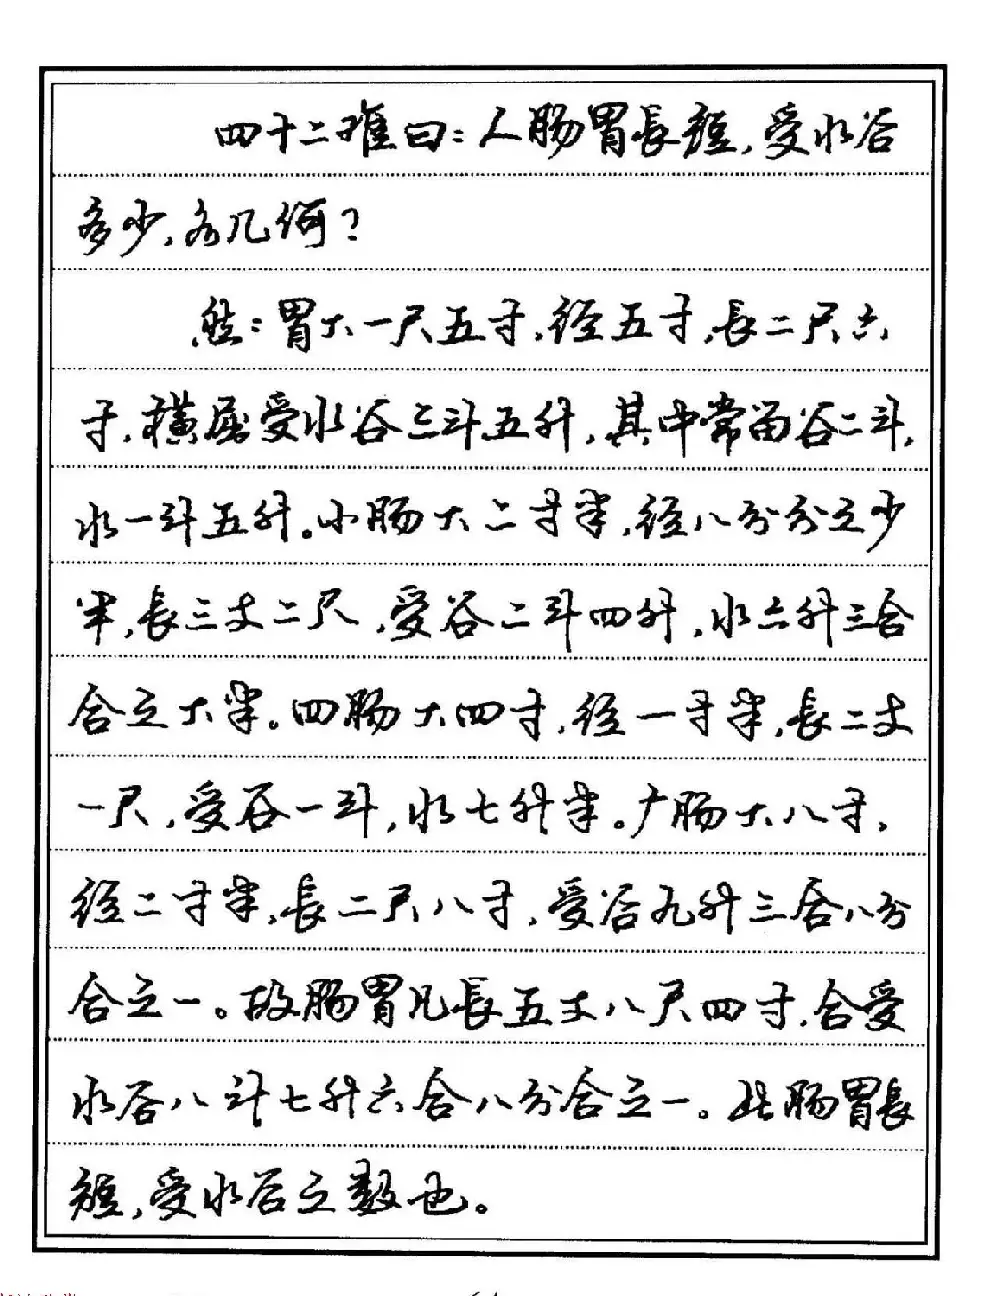 四十二难曰：人肠胃長短，受水谷
多少，各几何？
然：胃大一尺五寸，径五寸，長二尺六
寸，横屈受水谷三斗五升，其中常留谷二斗，
水一斗五升。小肠大二寸半，径八分分之少
半，長三丈二尺，受谷二斗四升，水六升三合
合之大半。四肠大四寸，径一寸半，長二丈
一尺，受谷一斗，水七升半。广肠大八寸，
径二寸半，長二尺八寸，受谷九升三合八分
合之一。故肠胃凡長五丈八尺四寸，合受
水谷八斗七升六合八分合之一。此肠胃長
短，受水谷之数也。